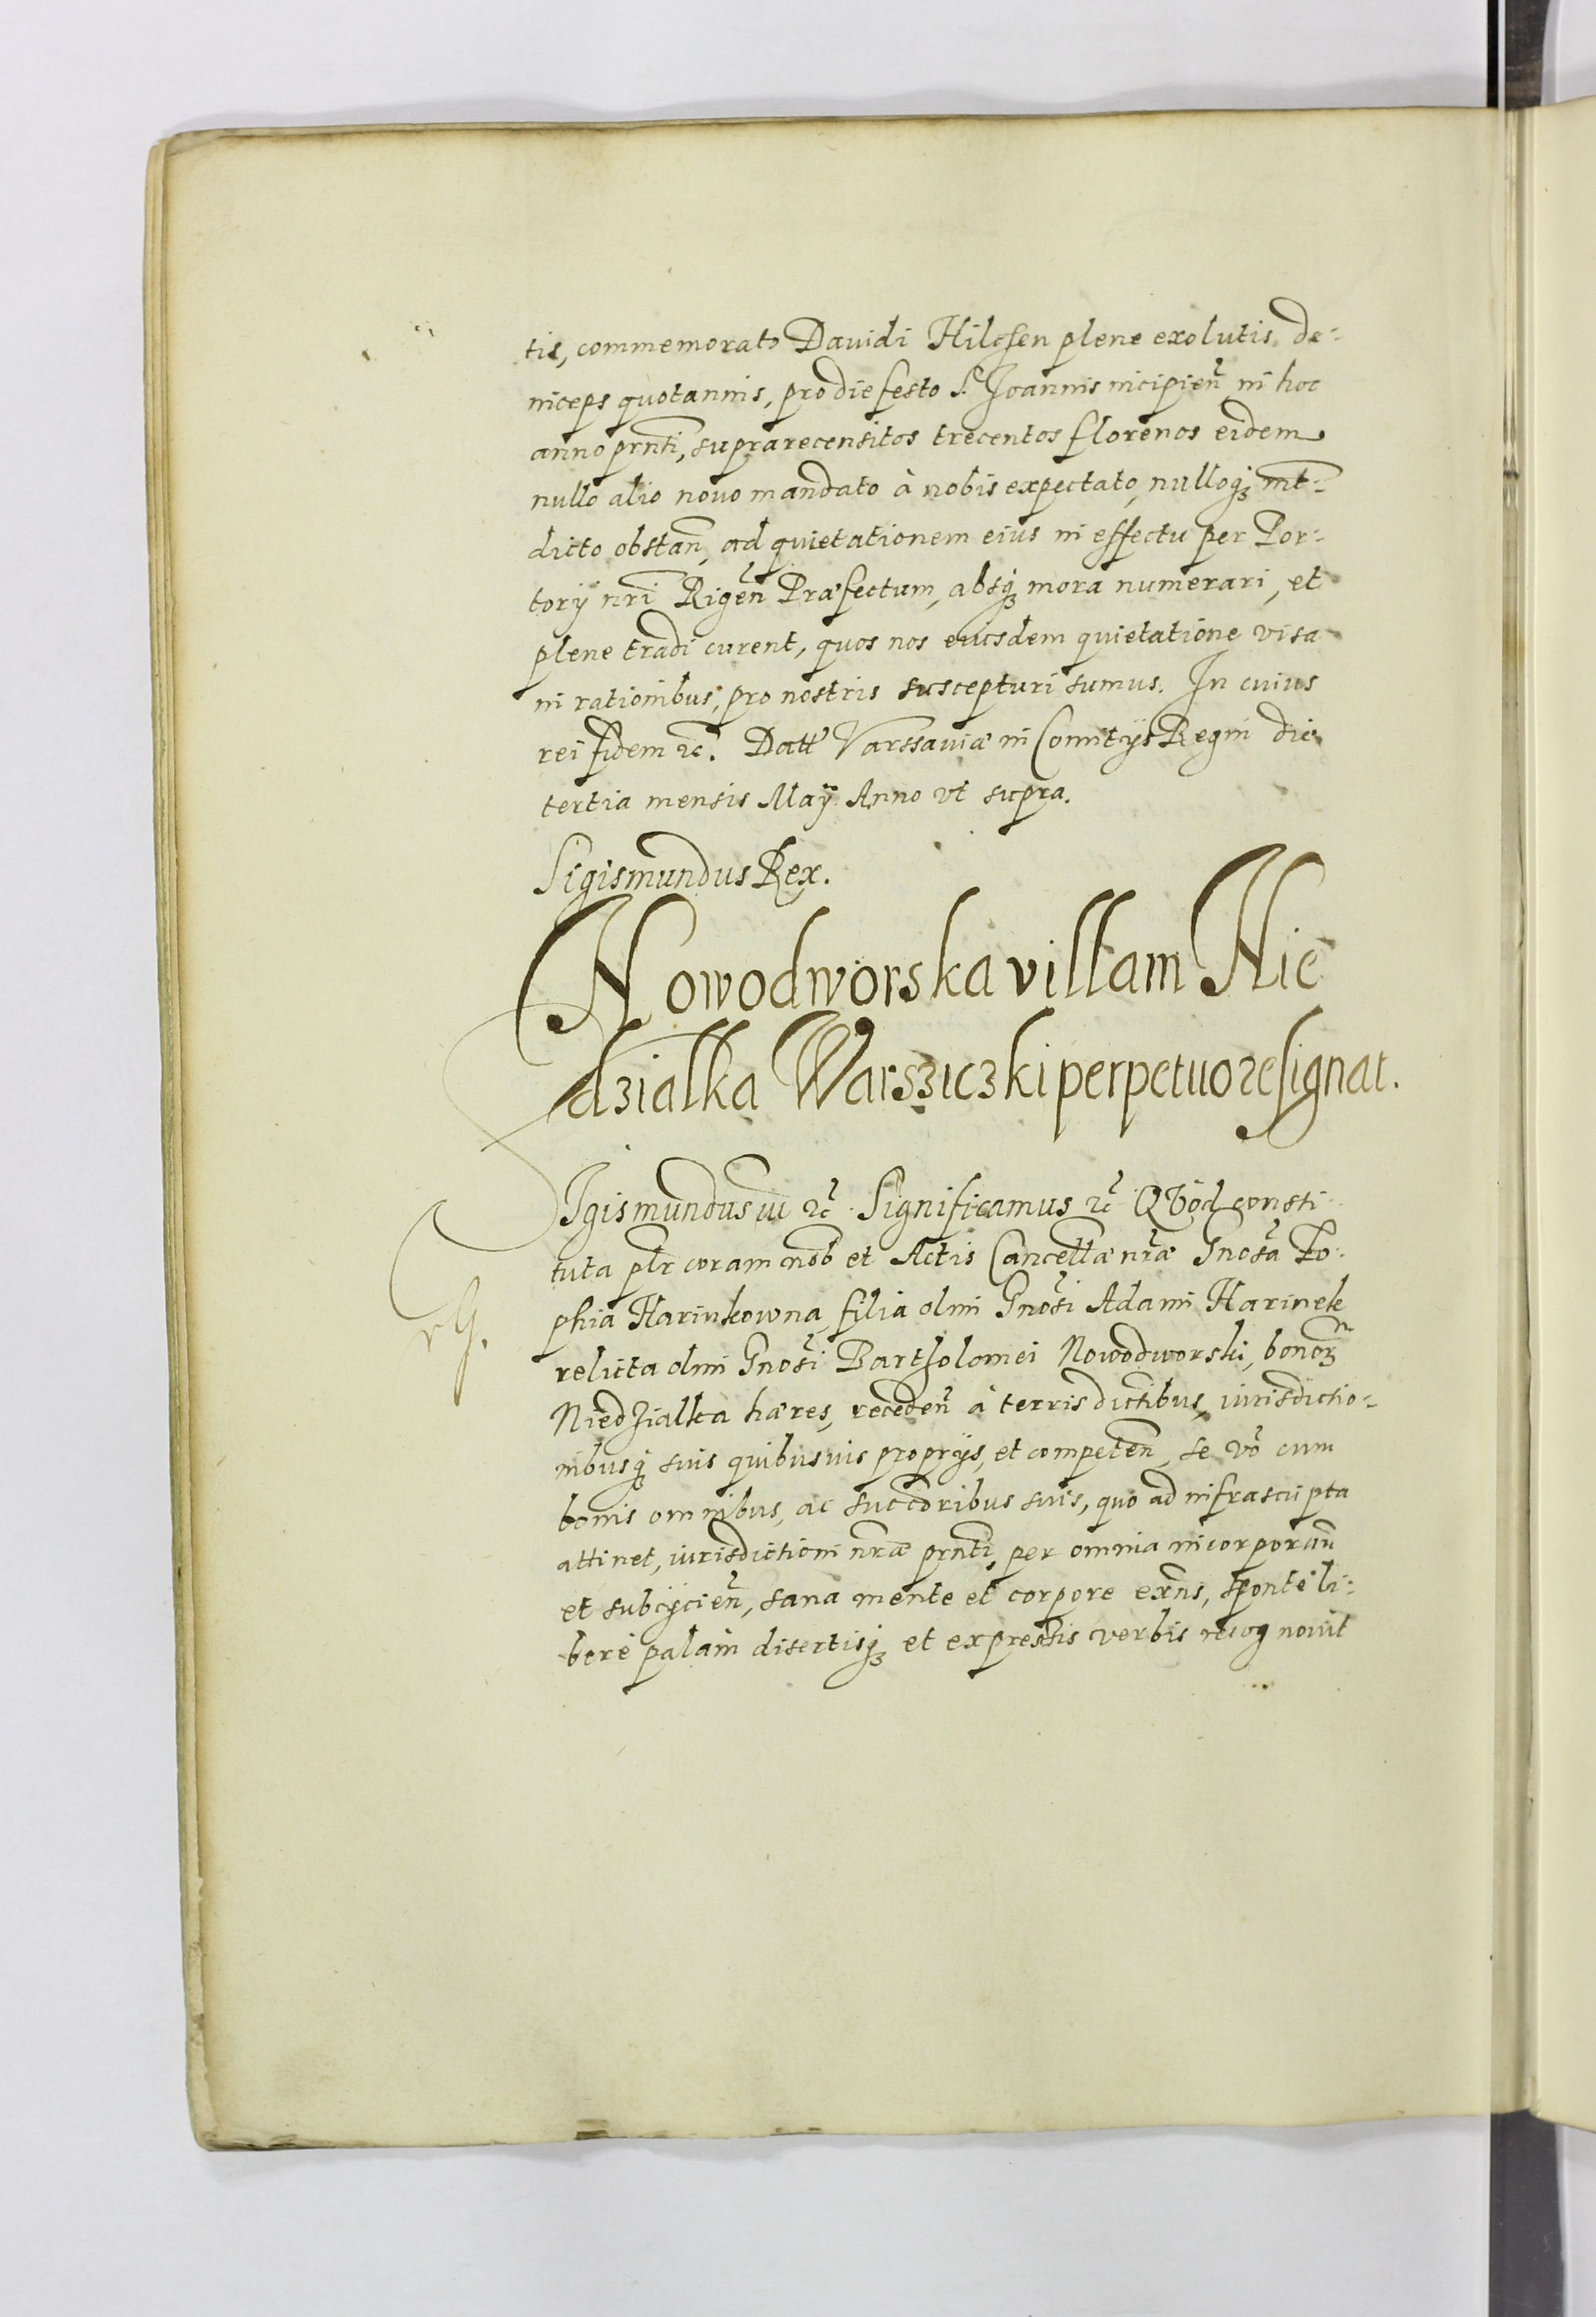 tis, commemorato Dauidi Hilchen plene exolutis, de-
inceps quotannis, pro die festo S. Joannis incipień in hoc
anno prńti, suprarecensitos trecentos florenos eidem
nullo alio nouo mandato à nobis expectato, nulloqꝫ int-
dicto obstań, ad quietationem eius in effectu per Por-
torij nrī Rigeñ Præfectum, absqꝫ mora numerari, et
plene tradi curent, quos nos eiusdem quietatione visa
in rationibus, pro nostris suscepturi sumus. In cuius
rei fidem ꝛc. Datt Varssauiæ in Comitijs Regni die
tertia mensis Maij Anno vt supra.
Sigismundus Rex.
Nowodworska villam Nie
dzialka Warsziczki perpetuo resignat.
SIgismundus iii ꝛc. Significamus ꝛc. Quod consti-
tuta plr coram nob et Actis Cancellæ nræ Gnosa So-
phia Harinkowna, filia olim Gnosi Adami Harinek
relicta olim Gnosi Bartholomei Nowodworski, bonorꝫ
Niedzialka hæres, recedeñ à terris dictibus, iurisdictio-
nibusqꝫ suis quibusuis proprijs, et competeñ, se vō cum
bonis omnibus, ac succōribus suis, quo ad infrascripta
attinet, iurisdictioni nræ prnti, per omnia incorporañ
et subijcieñ, sana mente et corpore exñs, sponte li-
bere palam disertisqꝫ et expressis verbis recognouit